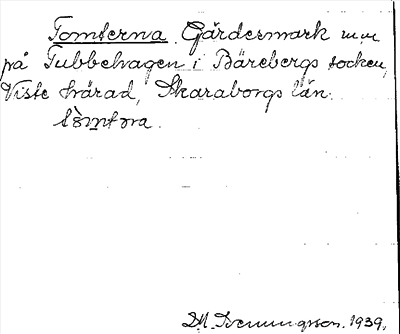 Tomterna. Gärdesmark m m
på Tubbehagen i Bärebergs socken,
Viste härad, Skaraborgs län.
tòmtra.
1939.